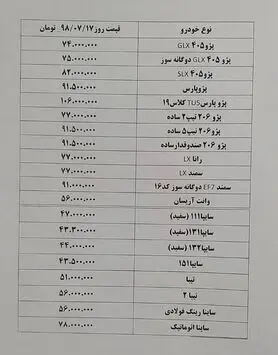 نوع خودرو قیمت روز ۹۸/۰۷/۱۷ تومان
پژو ۴۰۵ GLX ۷۴.۰۰۰.۰۰۰
پژو ۴۰۵ GLX دوگانه سوز ۷۵.۰۰۰.۰۰۰
پژو ۴۰۵ SLX ۸۲.۰۰۰.۰۰۰
پژوپارس ۹۱.۵۰۰.۰۰۰
پژو پارس TU5 کلاس۱۹ ۱۰۶.۰۰۰.۰۰۰
پژو ۲۰۶ تیپ۲ ساده ۷۷.۰۰۰.۰۰۰
پژو ۲۰۶ تیپ۵ ساده ۹۱.۵۰۰.۰۰۰
پژو ۲۰۶ صندوقدارساده ۹۱.۵۰۰.۰۰۰
رانا LX ۷۷.۰۰۰.۰۰۰
سمند LX ۷۷.۰۰۰.۰۰۰
سمند EF7 دوگانه سوز کد۱۶ ۹۱.۰۰۰.۰۰۰
وانت آریسان ۵۶.۰۰۰.۰۰۰
سایپا۱۱۱ (سفید) ۴۷.۰۰۰.۰۰۰
سایپا۱۳۱ (سفید) ۴۳.۳۰۰.۰۰۰
سایپا۱۳۲ (سفید) ۴۴.۰۰۰.۰۰۰
سایپا۱۵۱ ۴۳.۵۰۰.۰۰۰
تیبا ۵۱.۰۰۰.۰۰۰
تیبا ۲ ۵۶.۰۰۰.۰۰۰
ساینا رینگ فولادی ۵۶.۰۰۰.۰۰۰
ساینا اتوماتیک ۷۸.۰۰۰.۰۰۰